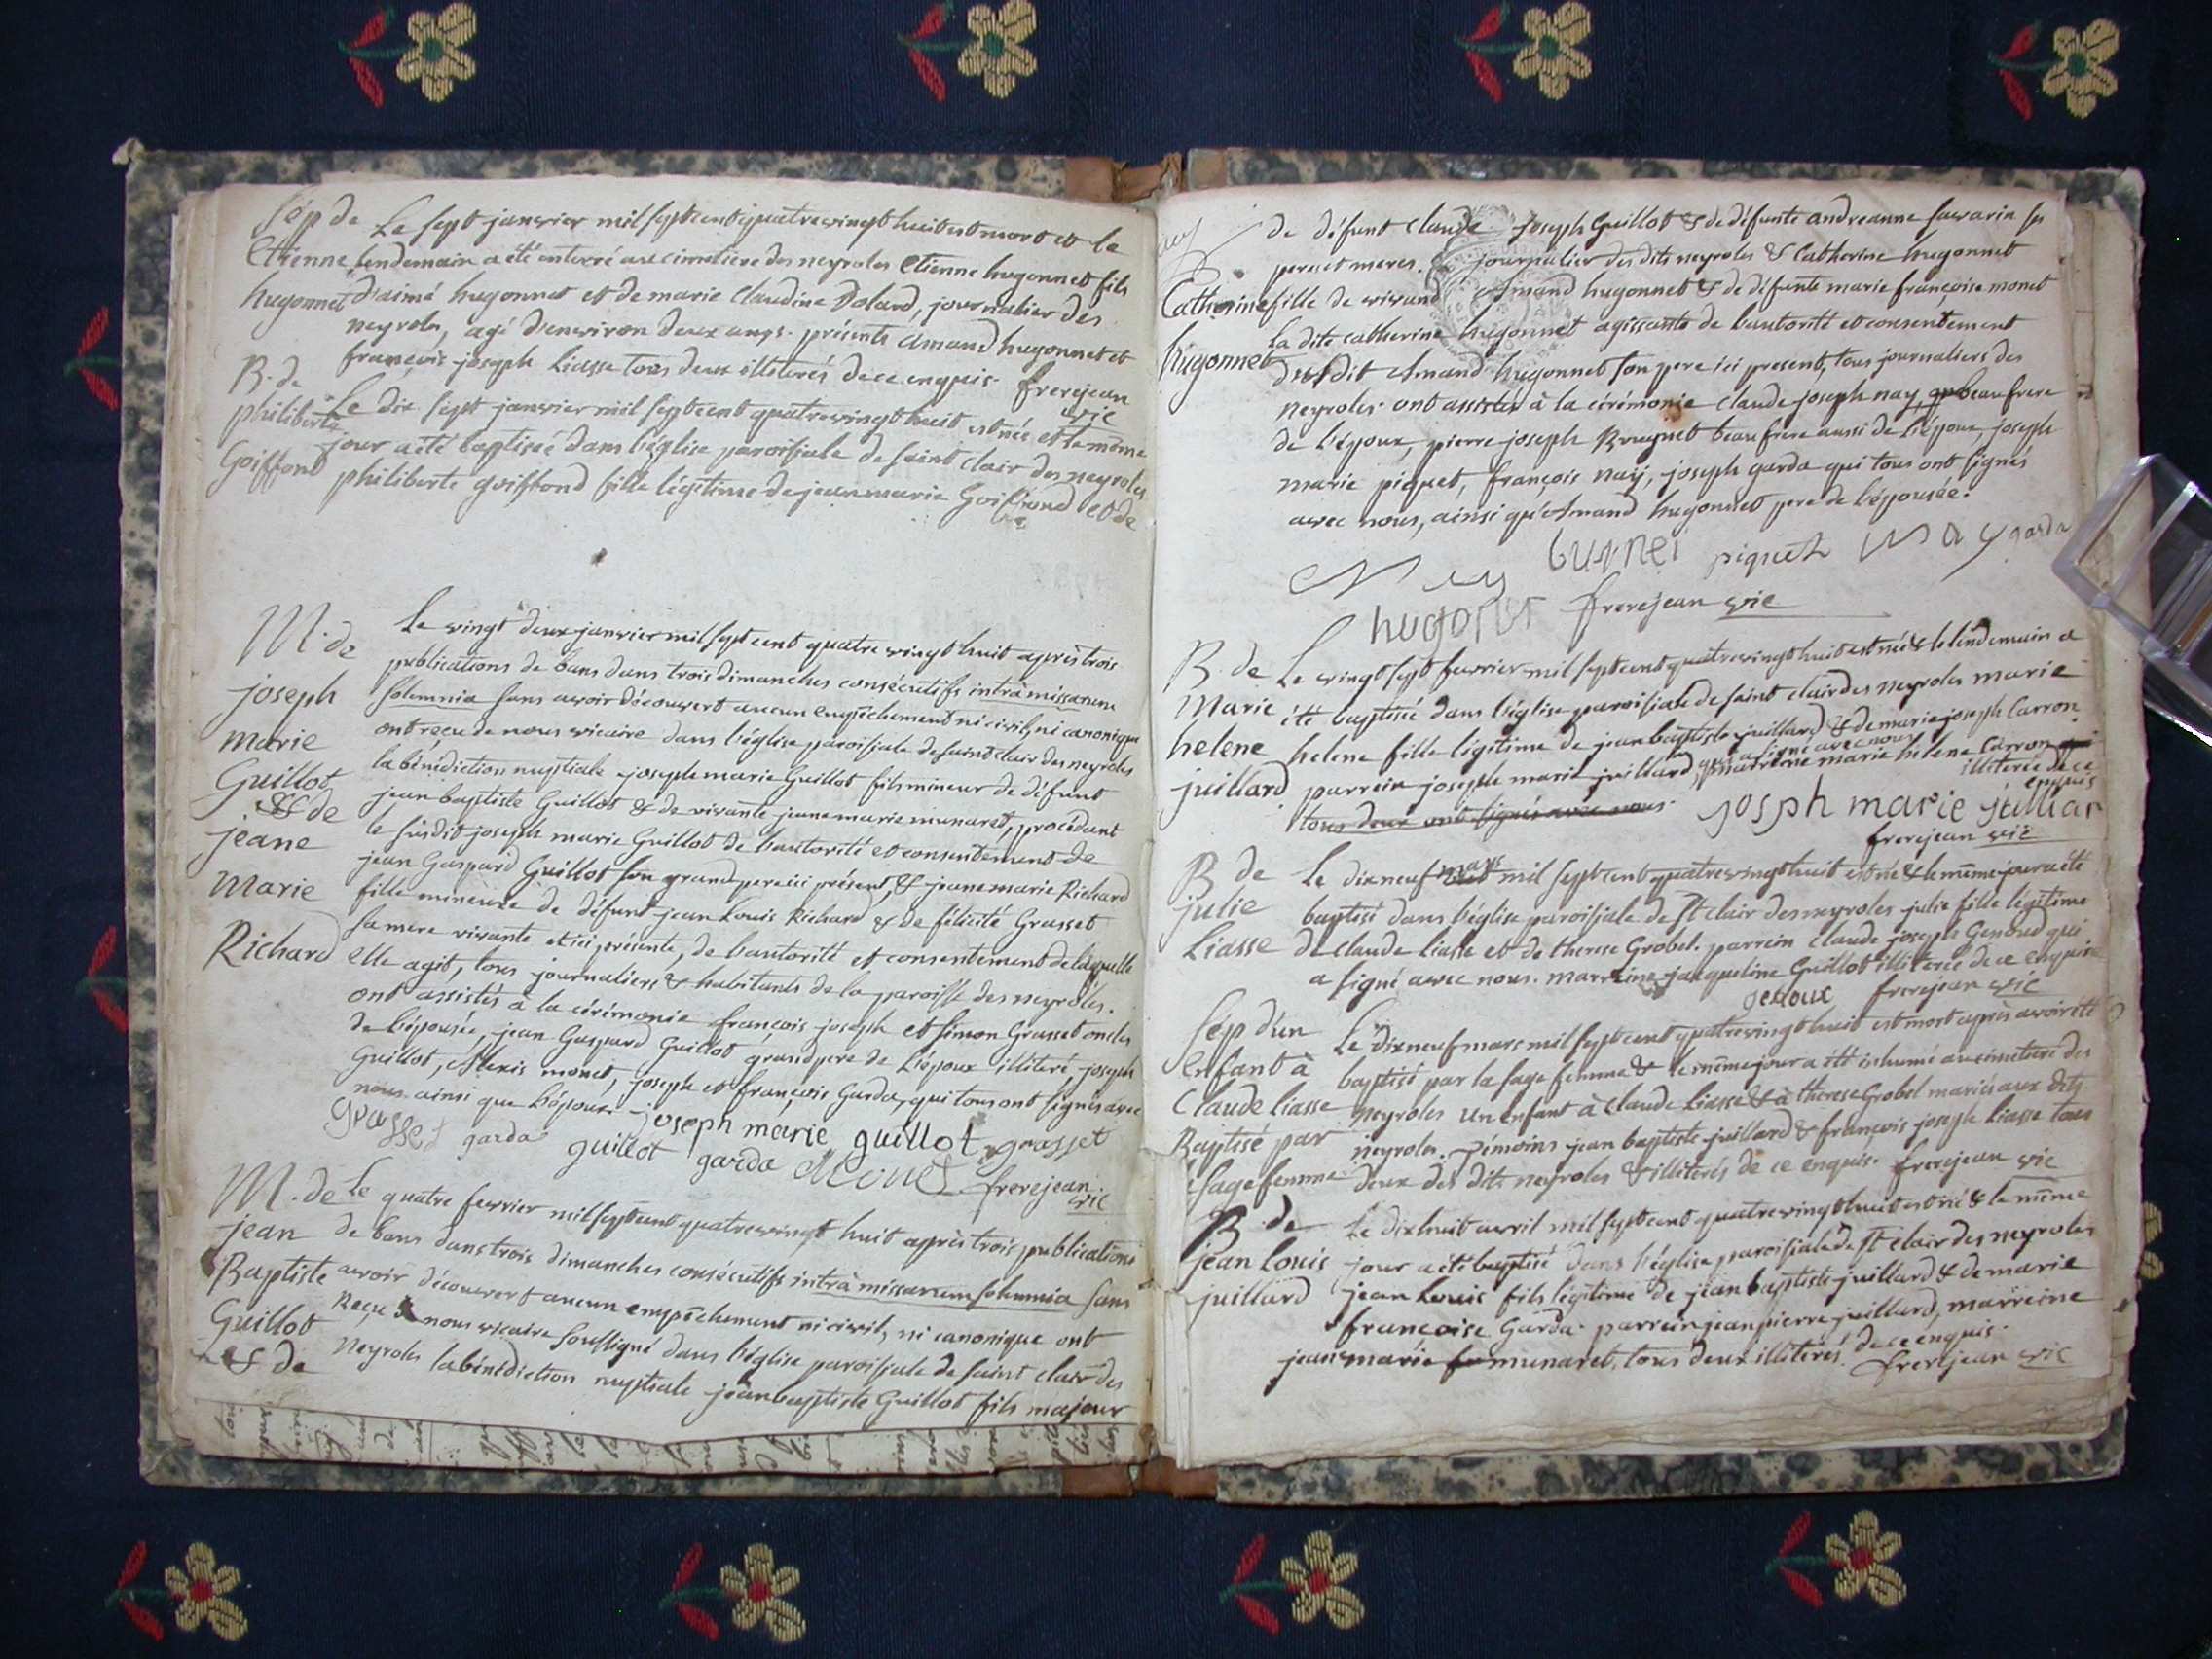 Sép de
Etienne
hugonnet
Le sept janvier mil sept cent quatrevingt huit est mort et le
lendemain a été enterré au cimetiere des neyroles Etienne hugonnet fils
d'aimé hugonnet et de marie Claudine Dolard, journalier des
neyroles, agé d'environ deux ans. présents amand hugonnet et
françois joseph Liasse tous deux illiterés de ce enquis. frerejean
vic
B. de
philiberte
Goiffond
Le dix sept janvier mil sept cent quatrevingt huit est née et le même
jour a été baptisée dans l'église paroissiale de saint clair des neyroles
philiberte goiffond fille légitime de jean marie Goiffond et de
M. de
joseph
marie
Guillot
& de
jeane
Marie
Richard
Le vingt deux janvier mil sept cent quatre vingt huit après trois
publications de bans dans trois dimanches consécutifs intrà missarum
solemnia sans avoir découvert aucun empêchement ni civil, ni canonique
ont reçu de nous vicaire dans l'église paroissiale de saint clair des neyroles
la bénédiction nuptiale joseph marie Guillot fils mineur de défunt
jean baptiste Guillot & de vivante jeane marie munaret, procédant
le susdit joseph marie Guillot de l'autorité et consentement de
jean Gaspard Guillot son grand pere ici présent, & jeane marie Richard
fille mineure de défunt jean Louis Richard & de félicité Grasset
sa mere vivante et ici présente, de l'autorité et consentement de laquelle
elle agit, tous journaliers & habitants de la paroisse des neyroles.
ont assistés à la cérémonie françois joseph et simon Grasset oncles
de l'épousée, jean Gaspard Guillot grand pere de l'époux illiteré, joseph
Guillot, Alexis monet, joseph et françois Garda, qui tous ont signés avec
nous ainsi que l'époux. joseph marie guillot grasset
Grasset garda guillot garda Monet frerejean
vic
M. de
jean
Baptiste
Guillot
& de
Le quatre fevrier mil sept cent quatrevingt huit après trois publications
de bans dans trois dimanches consécutifs intrà missarum solemnia sans
avoir découvert aucun empêchement ni civil, ni canonique ont
reçu de nous vicaire soussigné dans l'église paroissiale de saint clair des
Neyroles la bénédiction nuptiale jean baptiste Guillot fils majeur
Catherine
hugonnet
de défunt Claude joseph Guillot & de défunte andreanne savarin ses
pere et meres. journalier des dits neyroles & Catherine hugonnet
fille de vivand Amand hugonnet & de défunte marie françoise monet
la dite catherine hugonnet agissante de l'autorité et consentement
du dit Amand hugonnet son pere ici present, tous journaliers des
neyroles. ont assisté à la cérémonie claude joseph nay, beaufrere
de l'époux, pierre joseph Bruynet beau frere aussi de l'époux, joseph
marie piquet, françois nay, joseph garda qui tous ont signés
avec nous, ainsi qu'Amand hugonnet pere de l'épousée.
Nay burnei piquet Nay garda
hugonet frerejean vic
B. de
Marie
helene
juillard
Le vingt sept fevrier mil sept cent quatrevingt huit est née & le lendemain a
été baptisée dans l'église paroissiale de saint clair des neyroles marie
helene fille légitime de jean baptiste juillard & de marie joseph Carron
qui a signé avec nous
parrein joseph marie juillard, marreine marie helene Carron
illiterée de ce
enquis
tous deux ont signés avec nous. josph marie julliar
frerejean vic
B de
julie
Liasse
Le dix neuf mars mil sept cent quatrevingt huit est né & le même jour a été
baptisé dans l'église paroissiale de St clair des neyroles julie fille légitime
de claude Liasse et de therese Grobel. parrein claude joseph Genoud qui
a signé avec nous. marreine jacqueline Guillot illiterée de ce enquise
genoux frerejean vic
Sép d'un
enfant à
Claude Liasse
Baptisé par
sage femme
Le dix neuf mars mil sept cent quatrevingt huit est mort après avoir été
baptisé par la sage femme & le même jour a été inhumé au cimetiere des
neyroles un enfant à Claude Liasse & à therese Grobel mariés aux dits
neyroles. témoins jean baptiste juillard & françois joseph Liasse tous
deux des dits neyroles & illiterés de ce enquis. frerejean vic
B. de
jean Louis
juillard
Le dix huit avril mil sept cent quatrevingt huit est né & le même
jour a été baptisé dans l'église paroissiale de St clair des neyroles
jean Louis fils légitime de jean baptiste juillard & de marie
françoise Garda. parrein jean pierre juillard, marreine
jeanemarie munaret. tous deux illiterés de ce enquis.
frerejean vic